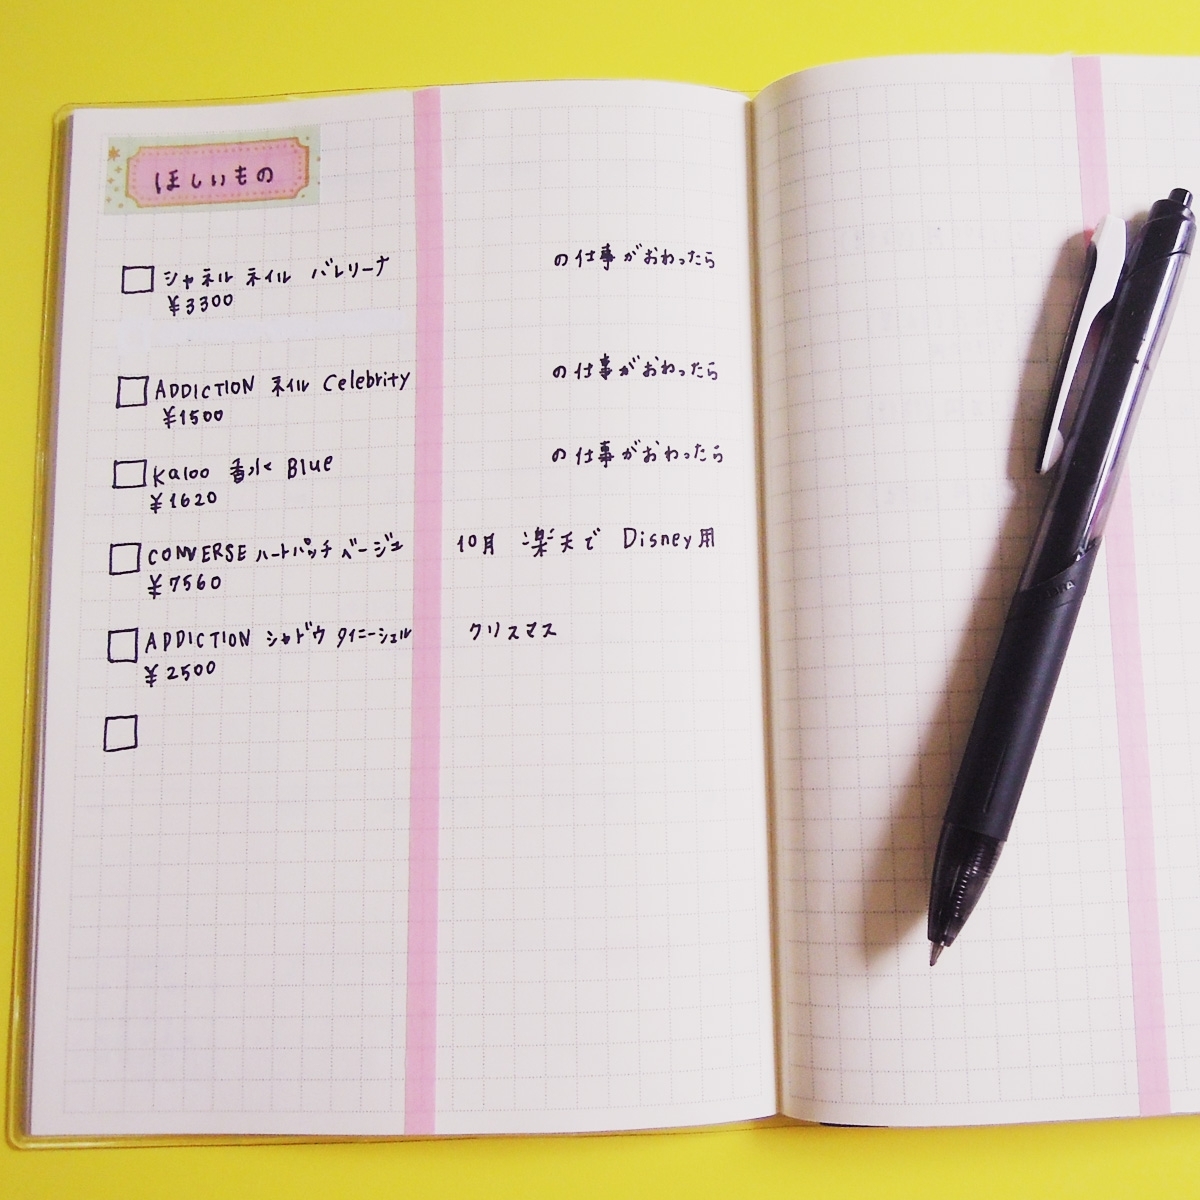 ほしいもの
シャネル ネイル バレリーナ の仕事がおわったら
¥3300
ADDICTION ネイル Celebrity の仕事がおわったら
¥1500
Kaloo 香水 Blue の仕事がおわったら
¥1620
CONVERSE ハートパッチ ベージュ 10月 楽天で Disney用
¥7560
ADDICTION シャドウ タイニーシェル クリスマス
¥2500